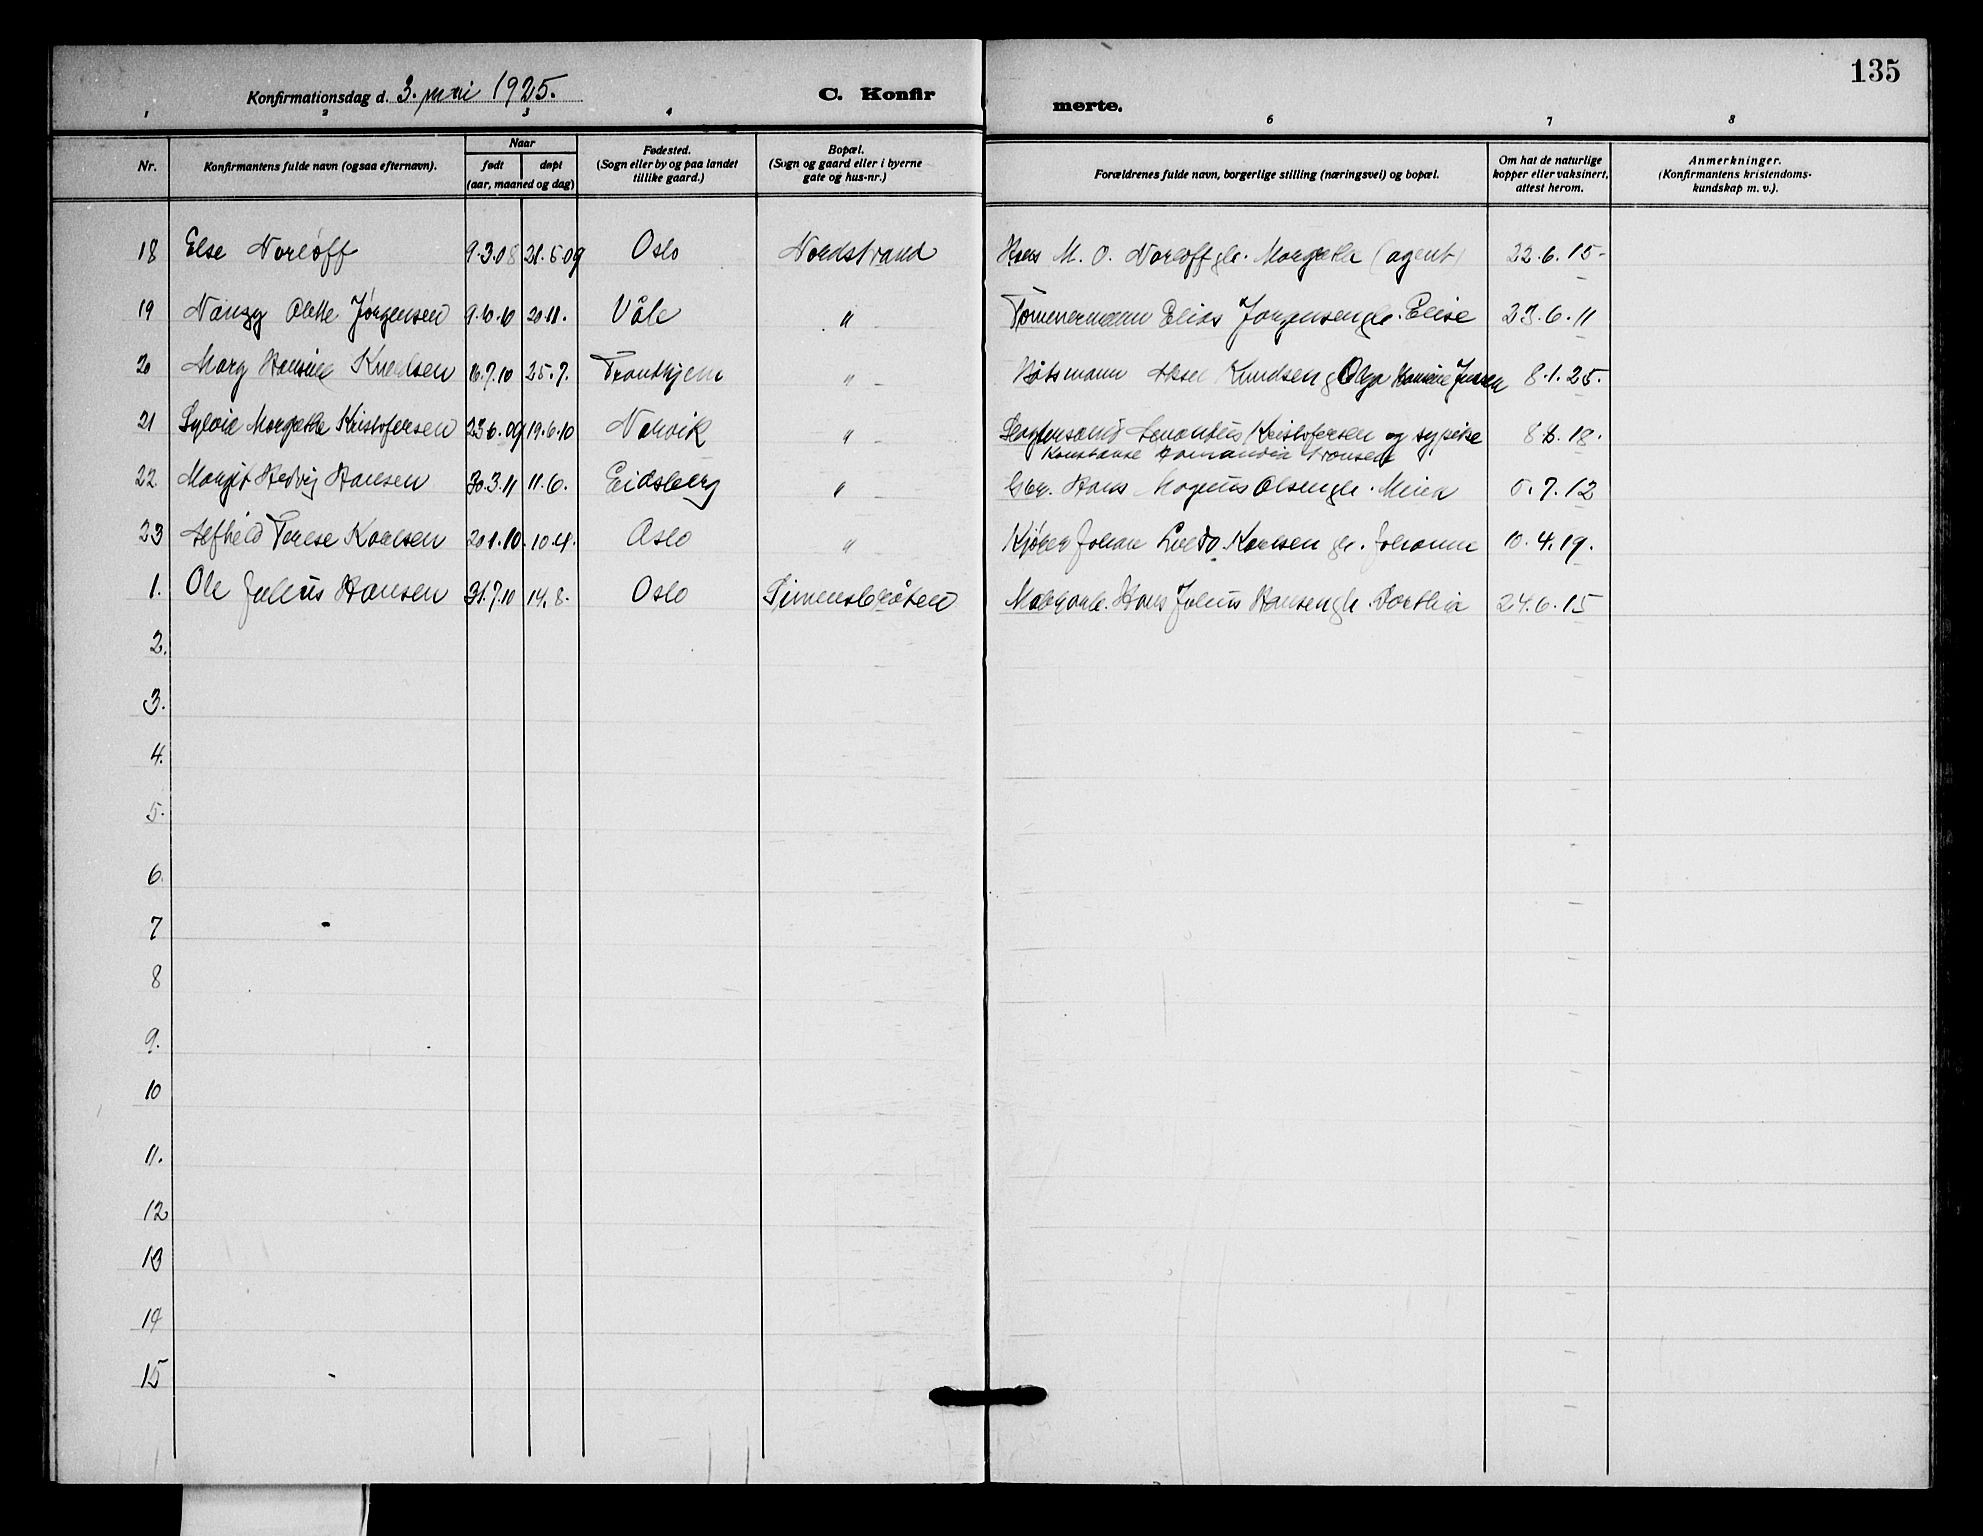 135
Konfirmationsdag d. 3. mai 1925.
C. Konfir merte.
1 2 3 4 6 7 8
Nr.
Konfirmantens fulde navn (ogsaa efternavn).
Naar
født døpt
(aar, maaned og dag)
Fødested.
(Sogn eller by og paa landet
tillike gaard.)
Bopæl.
(Sogn og gaard eller i byerne
gate og hus-nr.)
Forældrenes fulde navn, borgerlige stilling (næringsvei) og bopæl.
Om hat de naturlige
kopper eller vaksinert,
attest herom.
Anmerkninger.
(Konfirmantens kristendoms-
kundskap m. v.).
18 Else Norløff 9.3.08 21.5.09 Oslo Nordstrand Hans M. O. Norløff Margrethe (agent) 22.6.15
19 Olette Jørgensen 20.11. Våle " Tømmermann Elias Jørgensen Elise 23.6.11
20 Mary Hansine Knudsen 16.7.10 25.7. Trondhjem " Båtsmann Aksel Knudsen Olga Hansine Jensen 8.1.25.
21 Sylvia Margrethe Kristofersen 23.6.09 19.6.10 Narvik " Kristofersen og sypike 18.
Konstanse
22 Margit Hedvig Hansen 30.3.11 11.6. Eidsberg " Hans Magnus Olsen 7.12
23 Alfhild Terese Karlsen 20.1.10. 10.4. Oslo " Kjører Johan Karlsen Johanne 10.4.19.
1. Ole Julius Hansen 31.7.10 14.8. Oslo Simensbråten Hans Julius Hansen Dorthea 24.6.15
2.
3.
4.
5.
6.
7
8
9.
10
11.
12
13
14
15